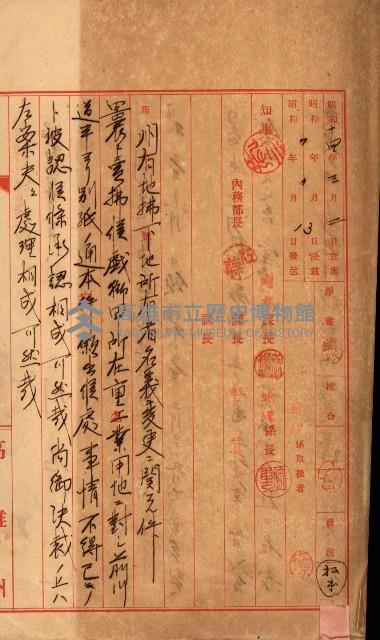 昭和十四年三月二日立案
昭和 年 月 日決裁
昭和 年 月 13日發送
淨書
校合
發送
係取扱者
知事
內務部長
課長
課長
課長
係長
州有地拂下地所有者名義變更ニ關スル件
賣拂候
所在重工業用地ニ對シ前川
道平ヨリ別紙通本件願出候處事情不得已モノ
ト被認候條御認相成可然哉尚御決裁ノ上ハ
左案夫々處理相成可然哉
高雄市立歷史博物館
KAOHSIUNG MUSEUM OF HISTORY
高雄州